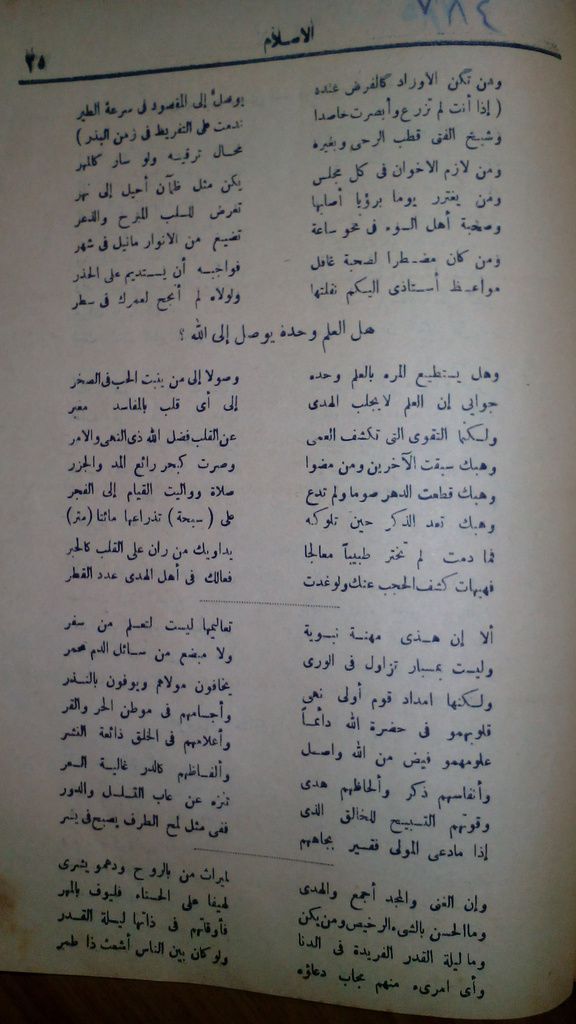 ٧٨٤
الاسلام
٣٥
ومن تكن الاوراد كالفرض عنده يوصل إلى المقصود فى سرعة الطير
( إذا أنت لم تزرع وأبصرت حاصدا ندمت على التفريط فى زمن البذر )
وشيخ الفتى قطب الرحى وبغيره محال ترقيه ولو سار كالمهر
ومن لازم الاخوان فى كل مجلس يكن مثل ظمآن أحيل إلى نهر
ومن يغترر يوما برؤيا أصابها تعرض للسلب المبرح والذعر
وصحبة أهل السوء فى نحو ساعة تضيع من الانوار مانيل فى شهر
ومن كان مضطرا لصحبة غافل فواجبه أن يستديم على الحذر
مواعظ أستاذى اليكم نقلتها ولولاه لم أنجح لعمرك فى سطر
هل العلم وحده يوصل إلى الله ؟
وهل يستطيع المرء بالعلم وحده وصولا إلى من ينبت الحب فى الصخر
جوابى إن العلم لا يجلب الهدى إلى أى قلب بالمفاسد مغبر
ولكنها التقوى التى تكشف العمى عن القلب فضل الله ذى النهى والامر
وهبك سبقت الآخرين ومن مضوا وصرت كبحر رائع المد والجزر
وهبك قطعت الدهر صوما ولم تدع صلاة وواليت القيام إلى الفجر
وهبك تعد الذكر حين تلوكه على ( سبحة ) تذراعها مائتا (متر)
فما دمت لم تختر طبيباً معالجا يداويك من ران على القلب كالحبر
فهيهات كشف الحجب عنك ولو غدت فعالك فى أهل الهدى عدد القطر
ألا إن هذى مهنة نبوية تعاليمها ليست لتعلم من سفر
وليست بمسبار تزاول فى الورى ولا مبضع من سائل الدم محمر
ولكنها امداد قوم أولى نهى يخافون مولاهم ويوفون بالنذر
قلوبهمو فى حضرة الله دائماً وأجسامهم فى موطن الحر والقر
علومهمو فيض من الله واصل وأعلامهم فى الخلق ذائعة النشر
وأنفاسهم ذكر وألحاظهم هدى وألفاظهم كالدر غالية السعر
وقوتهم التسبيح للخالق الذى تنزه عن عاب التسلل والدور
إذا مادعى المولى فقير بجاههم ففى مثل لمح الطرف يصبح فى يسر
وإن الفنى والمجد أجمع والهدى لميراث من بالروح ودهمو يشرى
وما الحسن بالشىء الرخيص ومن يكن لهيفا على الحسناء فليوف بالمهر
وما ليلة القدر الفريدة فى الدنا فأوقاتهم فى ذاتها ليلة القدر
وأى امرىء منهم مجاب دعاؤه ولو كان بين الناس أشعث ذا طمر